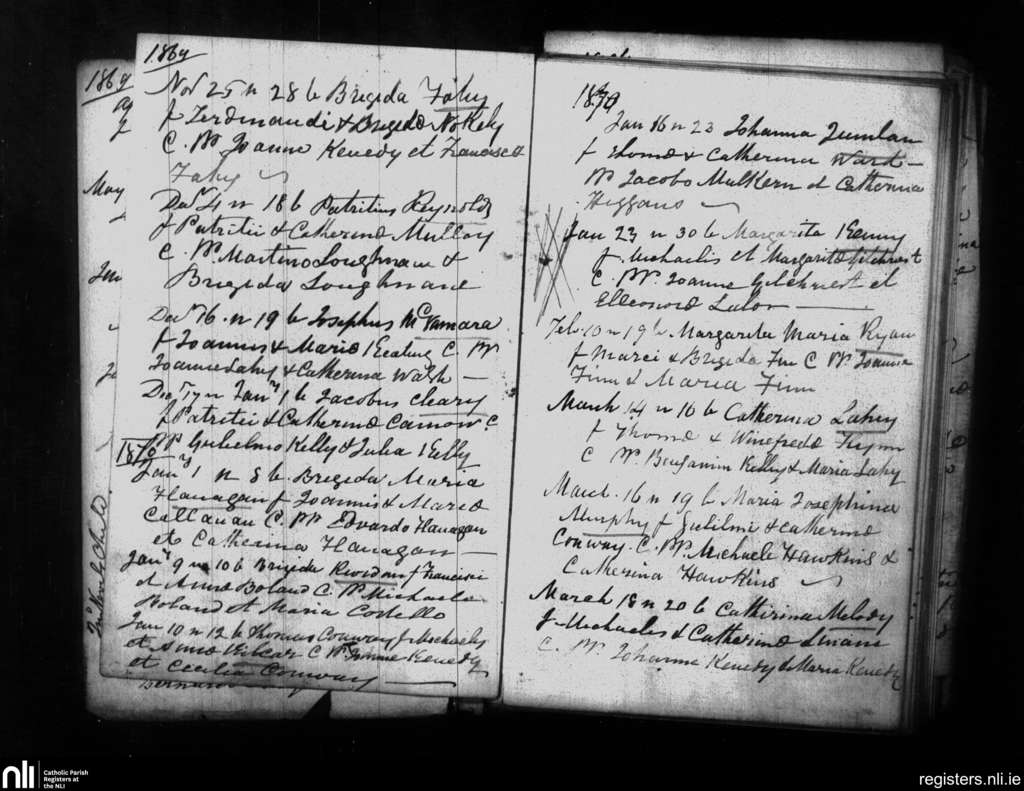 1869
1869
Nov 25 n 28 b Brigida Fahy
f Ferdinandi & Brigida
C. PP Joanne Kenedy et Francisca
Fahy
May
Dec 4 n 18 b Patritius Reynolds
f Patritii & Catherina Mullay
C. PP. Martino Loughnane &
Brigida Loughnane
Dec 16 n 19 b Josephus McNamara
f Joannis & Maria Keating C. PP
Joanne Lahy & Catherina Walsh
Dec 17 n Jany 1 b Jacobus Cleary
f Patritii & Catherina C
PP Gulielmo Kelly & Julia Kelly
1870
Jany 1 n 8 b. Brigida Maria
Flanagan f Joannis & Maria
Callanan C. PP Edvardo Flanagan
et Catherina Flanagan
Jany 9 n 10 b Brigida Riordan f Francisci
et Anna Boland C. PP Michaele
Noland et Maria Costello
Jan 10 n 12 b Thomas Conway f Michaelis
et Anna C PP Kenedy
et Cecilia Conway
1870
Jan 16 n 23 Johanna Quinlan
f Thoma & Catherina Ward
PP Jacobo Mulkern et Catherina
Higgans
Jan 23 n 30 b Margarita Kenny
f. Michaelis et Margarita Gilchriest
C. PP. Joanne Gilchriest et
Elleonora Lalor
Feb. 10 n 19 b. Margarita Maria Ryan
f Marci & Brigida Finn C PP. Joanne
Finn & Maria Finn
March 14 n 16 b Catherina Lahy
f Thoma & Winefreda Flynn
C PP. Benjamin Kelly & Maria Lahy
March 16 n 19 b Maria Josephina
Murphy f Gulilmi & Catherina
Conway. C. PP. Michaele Hawkins &
Catherina Hawkins
March 18 n 20 b Catherina Melody
f Michaelis & Catherina
C. PP. Johanna Kenedy & Maria Kenedy
nli
Catholic Parish
Registers at
the NLI
registers.nli.ie